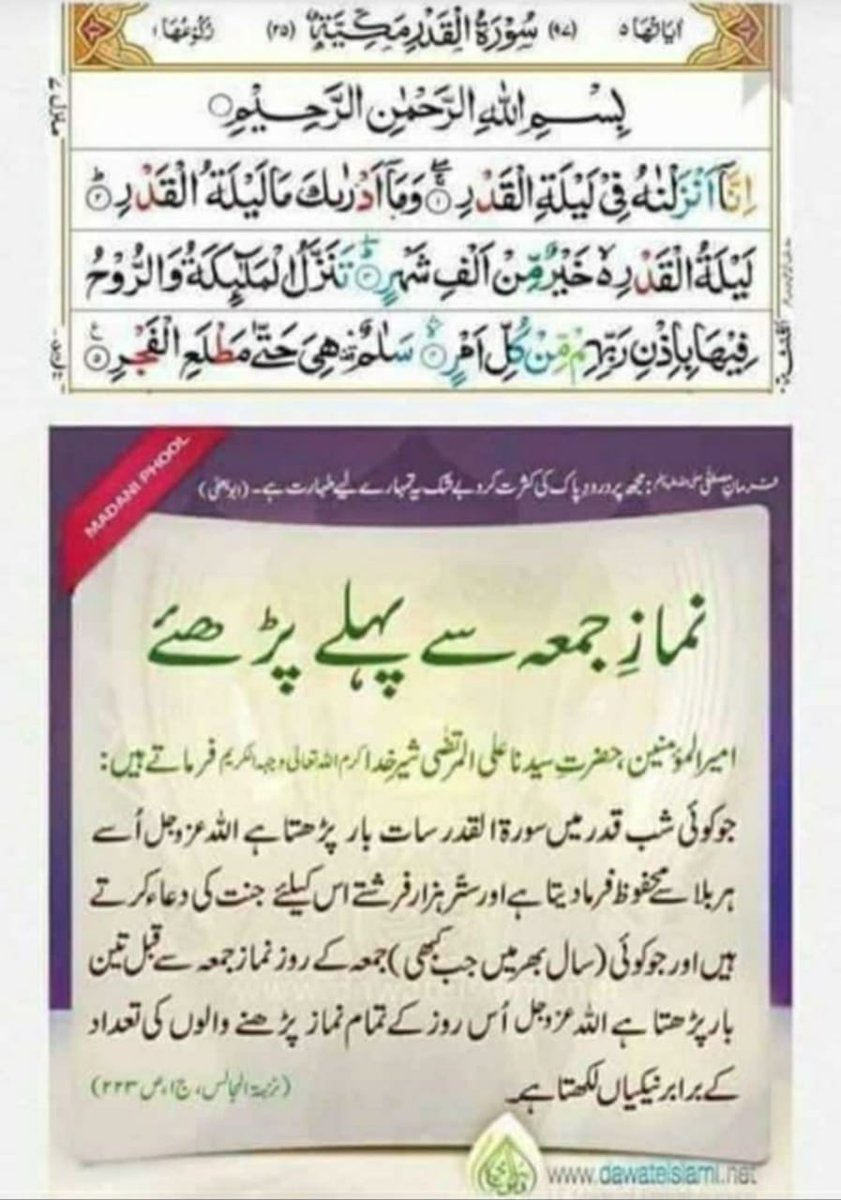 اٰیَاتُهَا ٥ (٩٧) سُوْرَةُ الْقَدْرِ مَكِّيَّةٌ (٢٥) رُكُوْعُهَا ١
بِسْمِ اللهِ الرَّحْمٰنِ الرَّحِيْمِ
اِنَّاۤ اَنْزَلْنٰهُ فِيْ لَيْلَةِ الْقَدْرِ ١ وَمَاۤ اَدْرٰىكَ مَا لَيْلَةُ الْقَدْرِ ٢
لَيْلَةُ الْقَدْرِ ە خَيْرٌ مِّنْ اَلْفِ شَهْرٍ ٣ تَنَزَّلُ الْمَلٰٓىِٕكَةُ وَالرُّوْحُ
فِيْهَا بِاِذْنِ رَبِّهِمْ مِّنْ كُلِّ اَمْرٍ ٤ سَلٰمٌ هِيَ حَتّٰى مَطْلَعِ الْفَجْرِ ٥
MADANI PHOOL
فرمانِ مصطفٰی صلی اللہ علیہ وسلم : مجھ پر درود پاک کی کثرت کرو بے شک یہ تمہارے لیے طہارت ہے۔ (ابو یعلیٰ)
نمازِ جمعہ سے پہلے پڑھئے
امیر المؤمنین، حضرتِ سیدنا علی المرتضٰی شیرِ خدا کرم اللہ تعالیٰ وجہہ الکریم فرماتے ہیں:
جو کوئی شب قدر میں سورۃ القدر سات بار پڑھتا ہے اللہ عزوجل اُسے
ہر بلا سے محفوظ فرما دیتا ہے اور ستّر ہزار فرشتے اس کیلئے جنت کی دعاء کرتے
ہیں اور جو کوئی (سال بھر میں جب کبھی) جمعہ کے روز نماز جمعہ سے قبل تین
بار پڑھتا ہے اللہ عزوجل اُس روز کے تمام نماز پڑھنے والوں کی تعداد
کے برابر نیکیاں لکھتا ہے۔ (نزہۃ المجالس، ج۱، ص ۲۲۳)
www.dawateislami.net